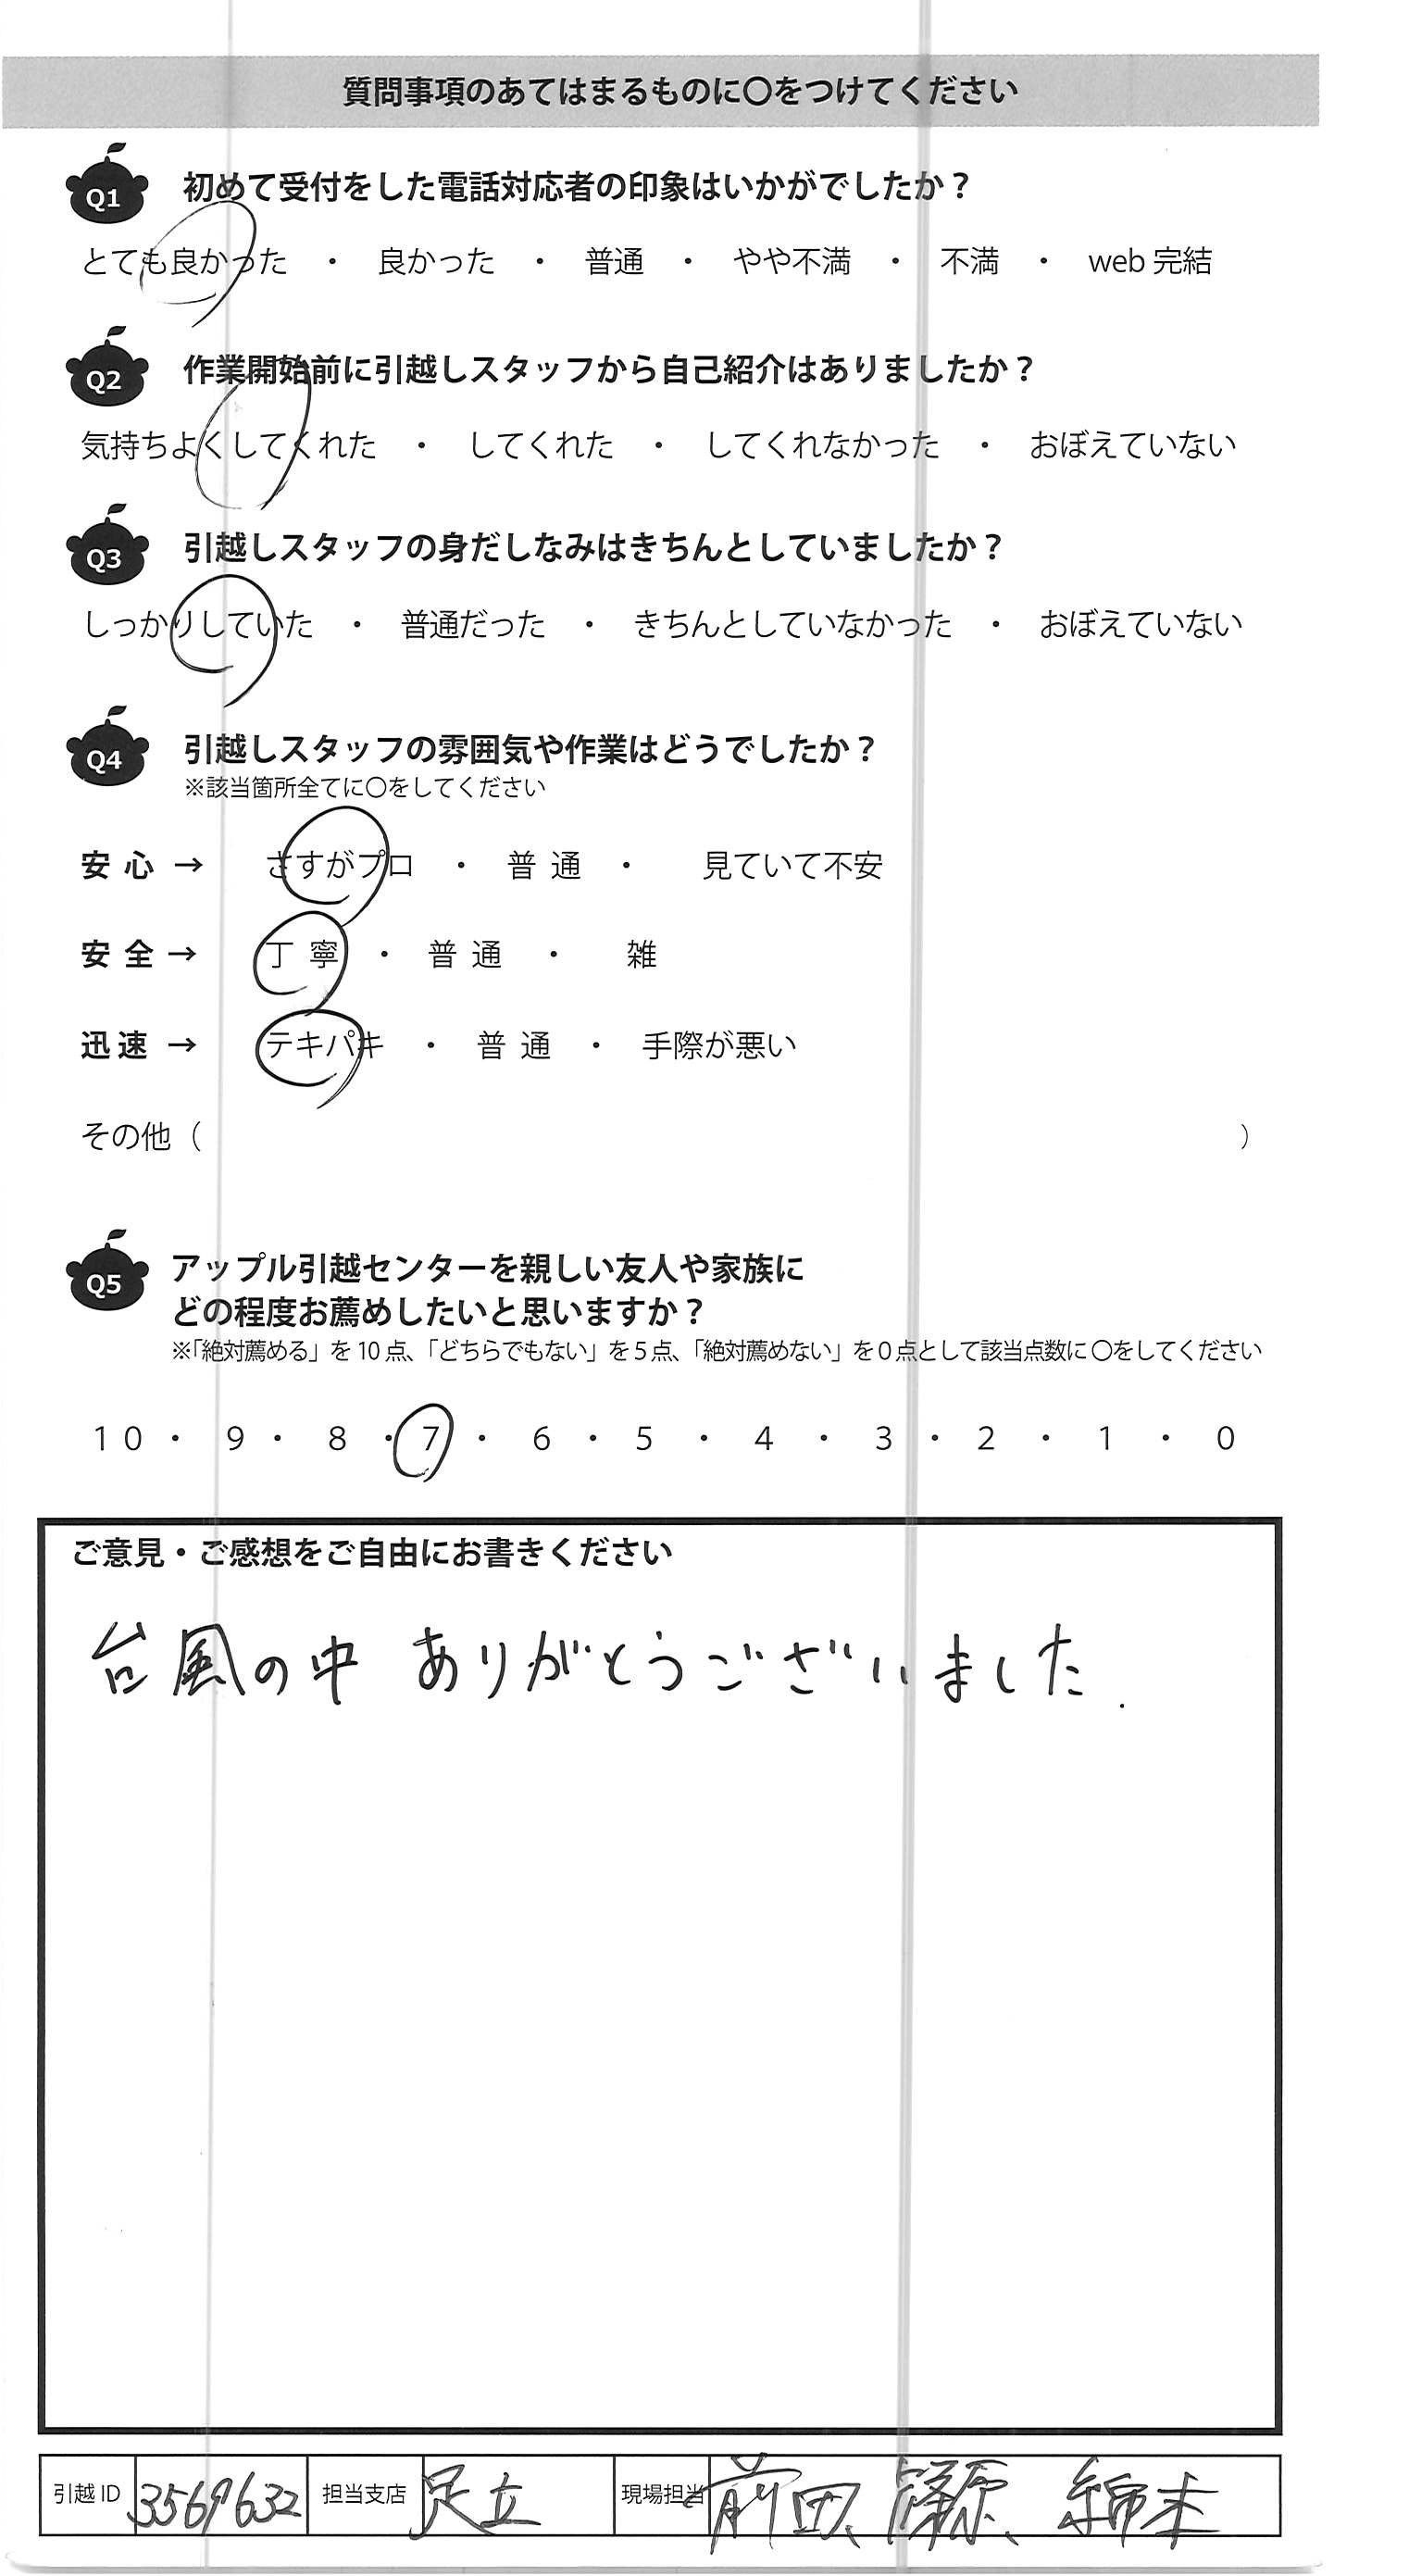 質問事項のあてはまるものに〇をつけてください
Q1 初めて受付をした電話対応者の印象はいかがでしたか？
とても良かった ・ 良かった ・ 普通 ・ やや不満 ・ 不満 ・ web 完結
Q2 作業開始前に引越しスタッフから自己紹介はありましたか？
気持ちよくしてくれた ・ してくれた ・ してくれなかった ・ おぼえていない
Q3 引越しスタッフの身だしなみはきちんとしていましたか？
しっかりしていた ・ 普通だった ・ きちんとしていなかった ・ おぼえていない
Q4 引越しスタッフの雰囲気や作業はどうでしたか？
※該当箇所全てに〇をしてください
安心 → さすがプロ ・ 普通 ・ 見ていて不安
安全 → 丁寧 ・ 普通 ・ 雑
迅速 → テキパキ ・ 普通 ・ 手際が悪い
その他（ ）
Q5 アップル引越センターを親しい友人や家族に
どの程度お薦めしたいと思いますか？
※「絶対薦める」を 10 点、「どちらでもない」を 5 点、「絶対薦めない」を 0 点として該当点数に〇をしてください
10 ・ 9 ・ 8 ・ 7 ・ 6 ・ 5 ・ 4 ・ 3 ・ 2 ・ 1 ・ 0
ご意見・ご感想をご自由にお書きください
台風の中 ありがとうございました.
引越 ID 3569632 担当支店 足立 現場担当 前田、